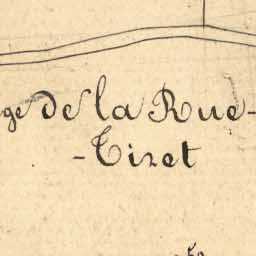 ge de la Rue-
-Tizet